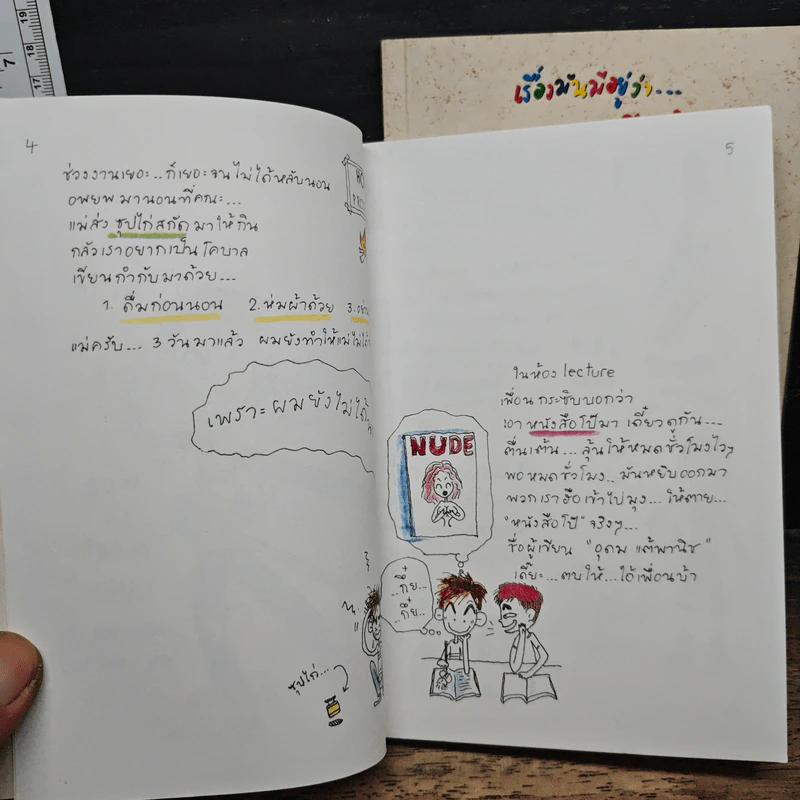 19
18
17
7
เรื่องมันมีอยู่ว่า...
4
ช่วงงานเยอะ.. ก็เยอะจนไม่ได้หลับนอน
อพยพมานอนที่คณะ...
แม่ส่ง ซุปไก่สกัด มาให้กิน
กลัวเราอยากเป็นโคบาล
เขียนกำกับมาด้วย...
1. ดื่มก่อนนอน 2. ห่มผ้าด้วย 3.
แม่ครับ... 3 วันมาแล้ว ผมยังทำให้แม่ไม่ได้
เพราะผมยังไม่ได้
ซุปไก่...
5
ในห้อง lecture
เพื่อนกระซิบบอกว่า
เอา หนังสือโป๊มา เดี๋ยวดูกัน...
ตื่นเต้น... ลุ้นให้หมดชั่วโมงไวๆ
พอหมดชั่วโมง.. มันหยิบออกมา
พวกเราฮือเข้าไปมุง... ให้ตาย...
"หนังสือโป๊" จริงๆ...
ชื่อผู้เขียน "อุดม แต้พานิช"
เดี๊ยะ... ตบให้... ไอ้เพื่อนบ้า
NUDE
..กึ๋ย..
..กึ๋ย..